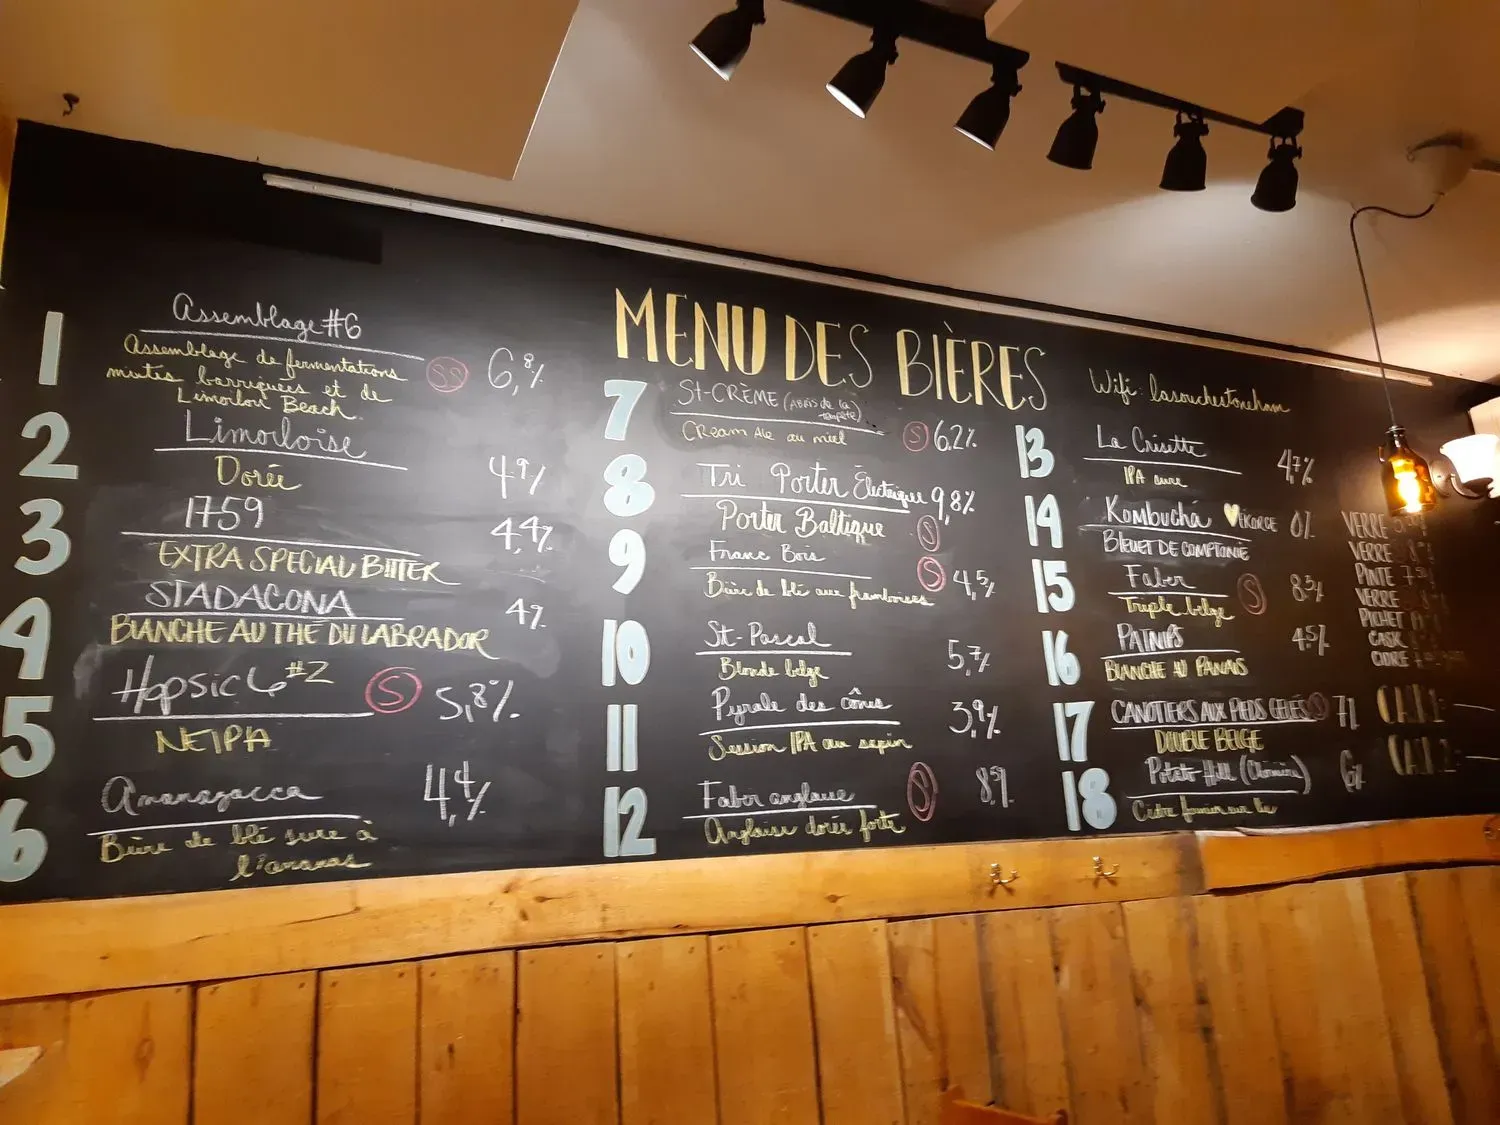 MENU DES BIÈRES
1
Assemblage #6
Assemblage de fermentations
mixtes barriquées et de
Limoilou Beach
SS
6,8%
2
Limoiloise
Dorée
4,9%
3
1759
EXTRA SPECIAL BITTER
4,4%
4
STADACONA
BLANCHE AU THÉ DU LABRADOR
4%
5
Hopsic6 #2
NEIPA
S
5,8%
6
Ananazacca
Bière de blé sure à
l'ananas
4,4%
7
St-CRÈME (ABRIS de la
tempête)
CReam Ale au miel
S
6,2%
8
Tri Porter Électrique
Porter Baltique
S
9,8%
9
Franc Bois
Bière de blé aux framboises
S
4,5%
10
St-Pascal
Blonde belge
5,7%
11
Pyrale des cônes
Session IPA au sapin
3,9%
12
Faber anglaise
Anglaise dorée forte
S
8,5%
Wifi: lasouchestoneham
13
La Crisette
IPA sure
4,7%
14
Kombucha
BLEUET DE COMPTONIE
0%
15
Faber
Triple belge
S
8,5%
16
PATNIPS
BLANCHE AU PANAIS
4,5%
17
CANOTIERS AUX PIEDS GELÉS
DOUBLE BELGE
S
7%
18
Potato Hill
Cidre fermier sur lie
6%
VERRE
VERRE
PINTE
VERRE
PICHET
CASK
CIDRE